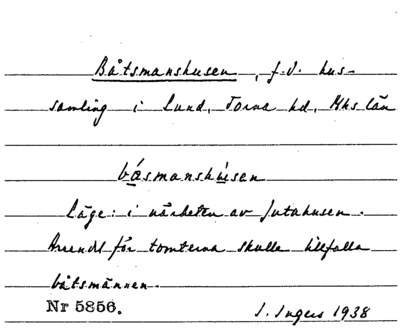 Båtsmanshusen, f.d. hus-
samling i Lund, Torna hd, Mhs län
båsmanshúsan
Läge: i närheten av Jutahusen.
Arrendet för tomterna skulle tillfalla
båtsmännen.
Nr 5856. I. Ingers 1938